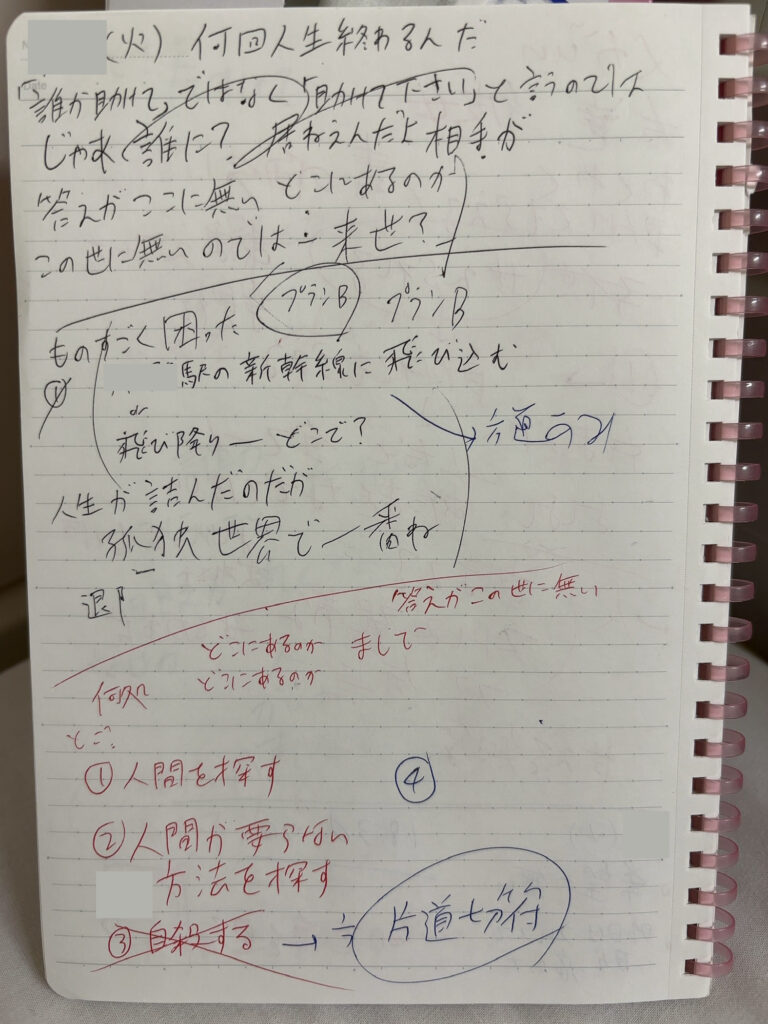 (火) 何回人生終わるんだ
「誰か助けて」ではなく「助けて下さい」と言うのでは
じゃあ誰に? 居ねえんだよ相手が
答えがここに無い どこにあるのか
この世に無いのでは 来世?
プランB プランB
ものすごく困った
① 駅の新幹線に飛び込む
or
飛び降り ー どこで?
人生が詰んだのだが
孤独 世界で一番ね
答えがこの世に無い
どこにあるのか まじで
何処 どこにあるのか
とこ?
① 人間を探す ④
② 人間が要らない
方法を探す
③ 自殺する → 片道切符